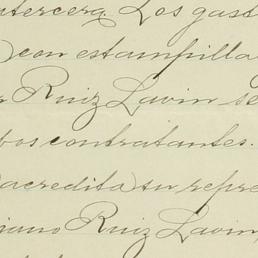 ntercera. Los gast
) con estampilla
Ruiz Lavin se
bos contratantes.
acredita su repre
iano Ruiz Lavin,